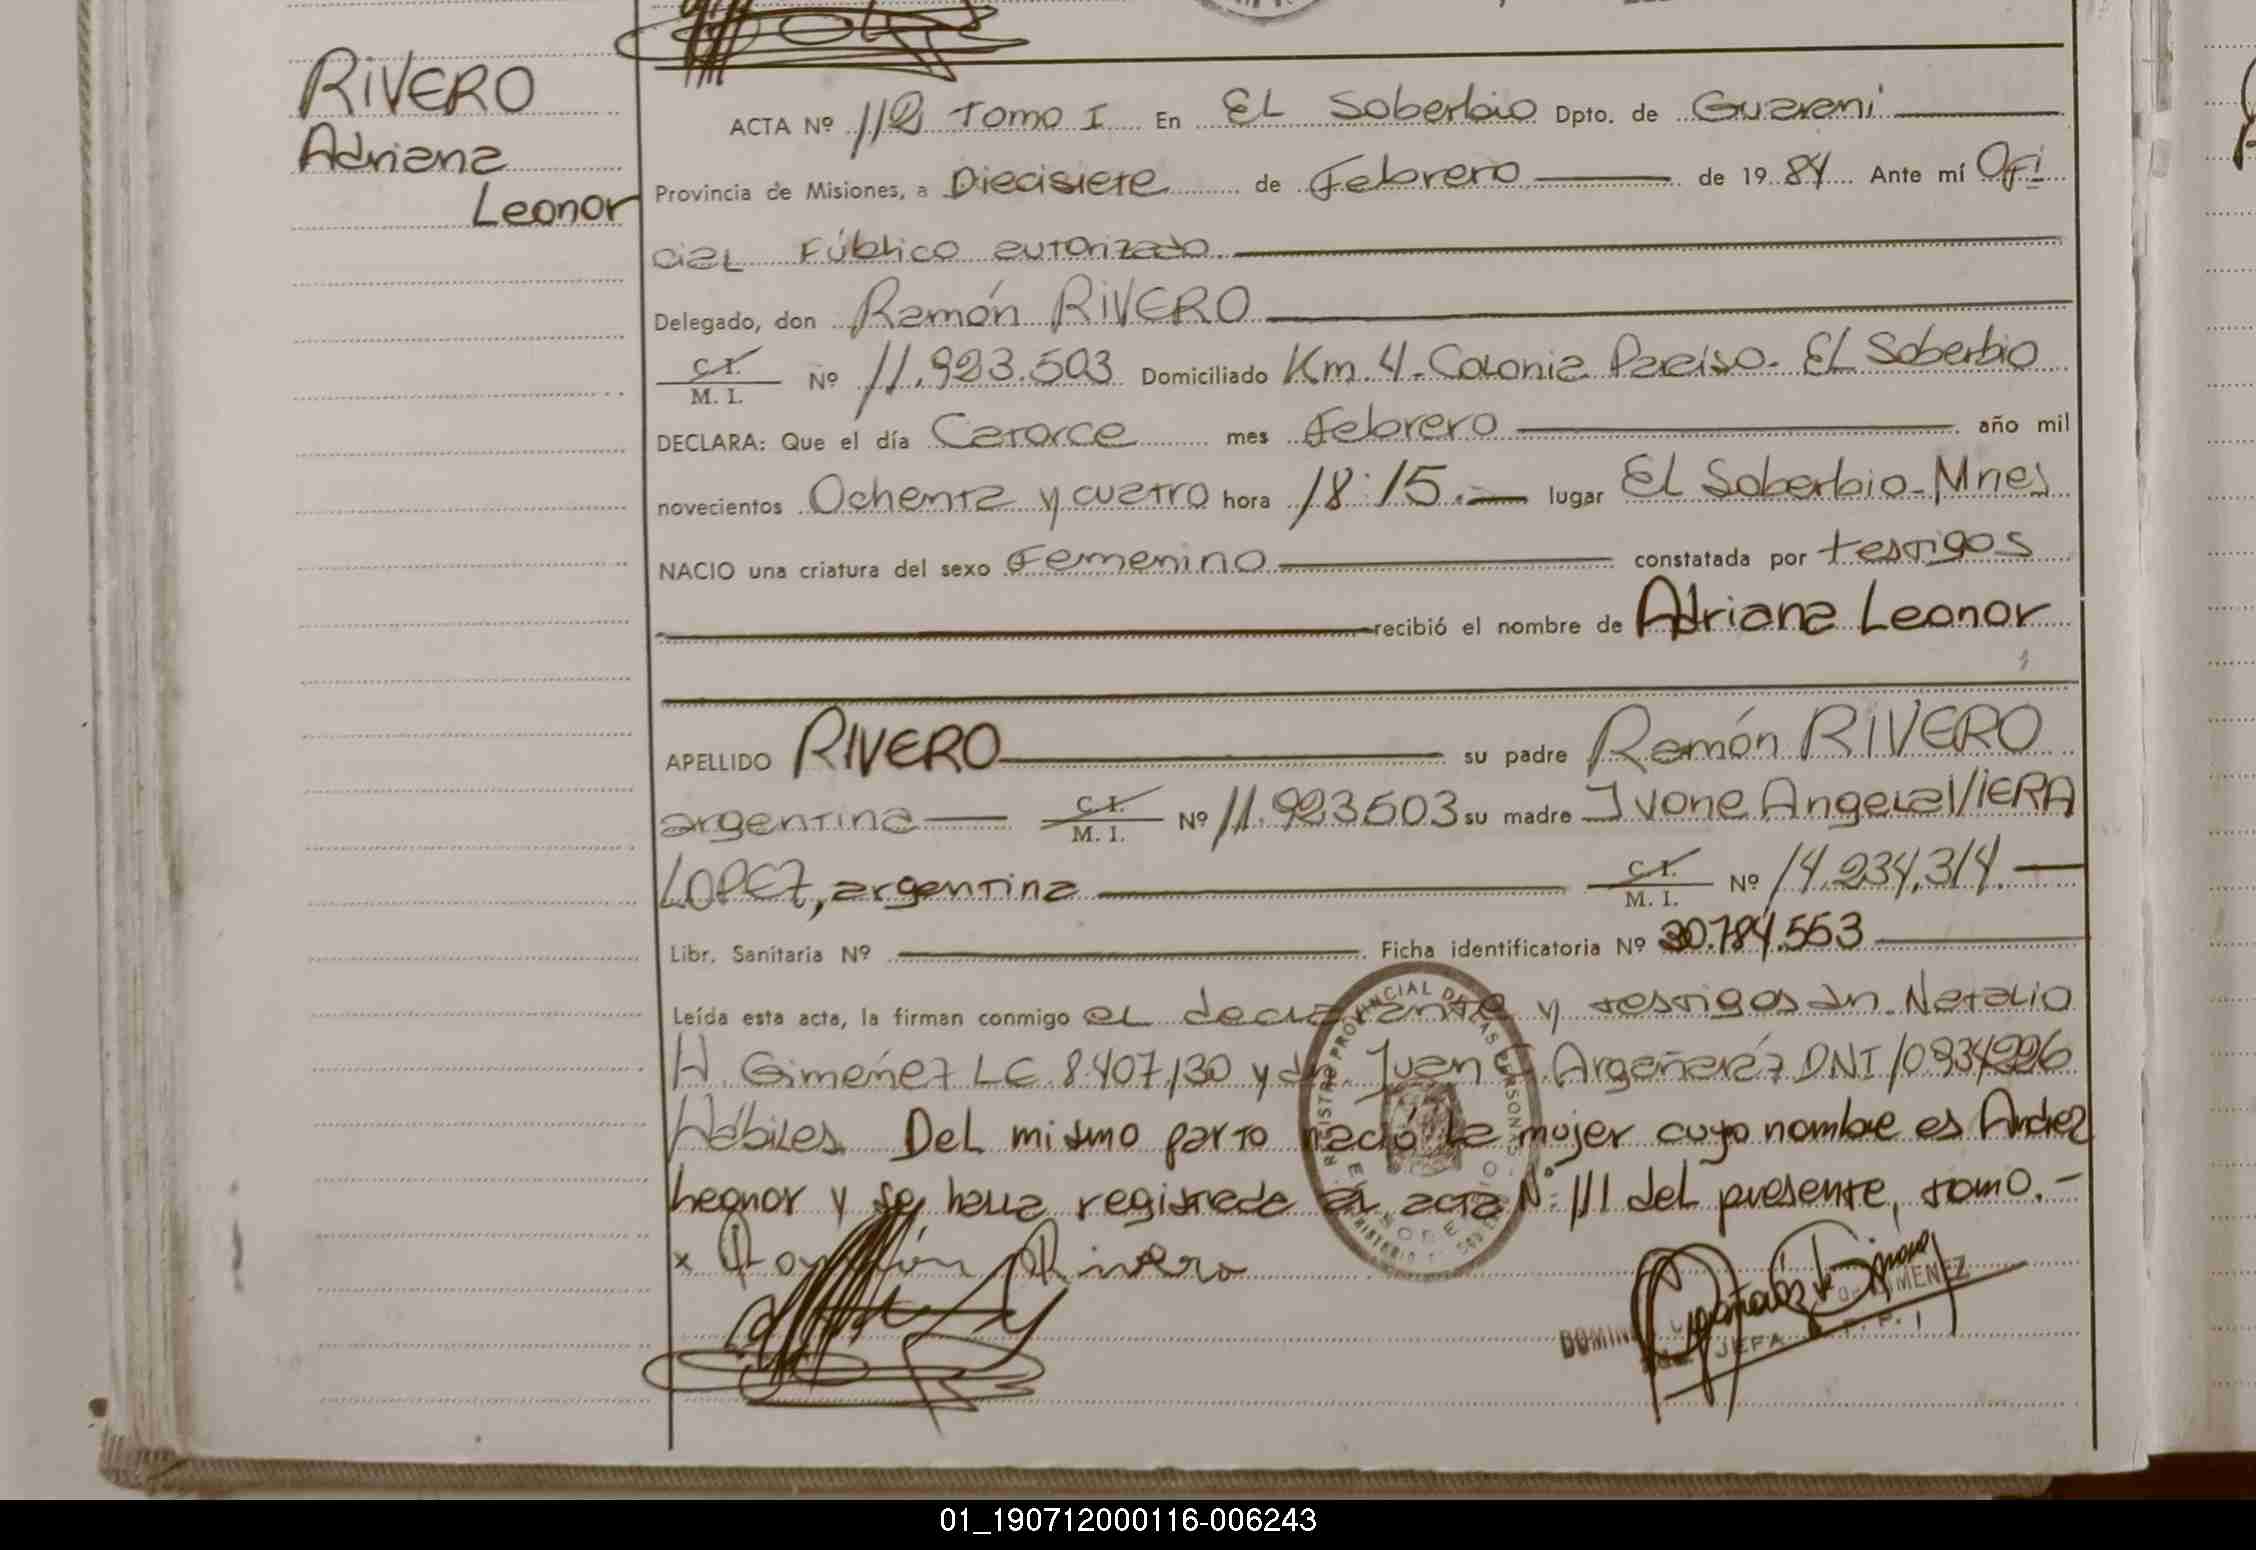 RIVERO
Adriana
Leonor
ACTA Nº 112 Tomo I En EL Soberbio Dpto. de Guarani
Provincia de Misiones, a Diecisiete de Febrero de 1984 Ante mí Ofi
cial Público autorizado
Delegado, don Ramón RIVERO
C. I.
M. I. Nº 11.923.503 Domiciliado Km. 4 - Colonia Paraiso - EL Soberbio
DECLARA: Que el día Catorce mes Febrero año mil
novecientos Ochenta y cuatro hora 18:15.- lugar El Soberbio - Mnes
NACIO una criatura del sexo Femenino constatada por testigos
recibió el nombre de Adriana Leonor
APELLIDO RIVERO su padre Ramón RIVERO
argentina C. I. M. I. Nº 11.923503 su madre Ivone Angela VIERA
LOPEZ, argentina C. I. M. I. Nº 14.234.314.
Libr. Sanitaria Nº Ficha identificatoria Nº 30.784.553
Leída esta acta, la firman conmigo el declarante y testigos dn. Natalio
H. Gimeñez LE 8.407.130 y dn. Juan Argañaréz DNI 10934226
Hábiles. Del mismo parto nació la mujer cuyo nombre es Andrea
Leonor y se halla registrada al acta Nº: 111 del presente, tomo.-
x Ramón Rivero
REGISTRO PROVINCIAL DE LAS PERSONAS
JEFA
01_190712000116-006243